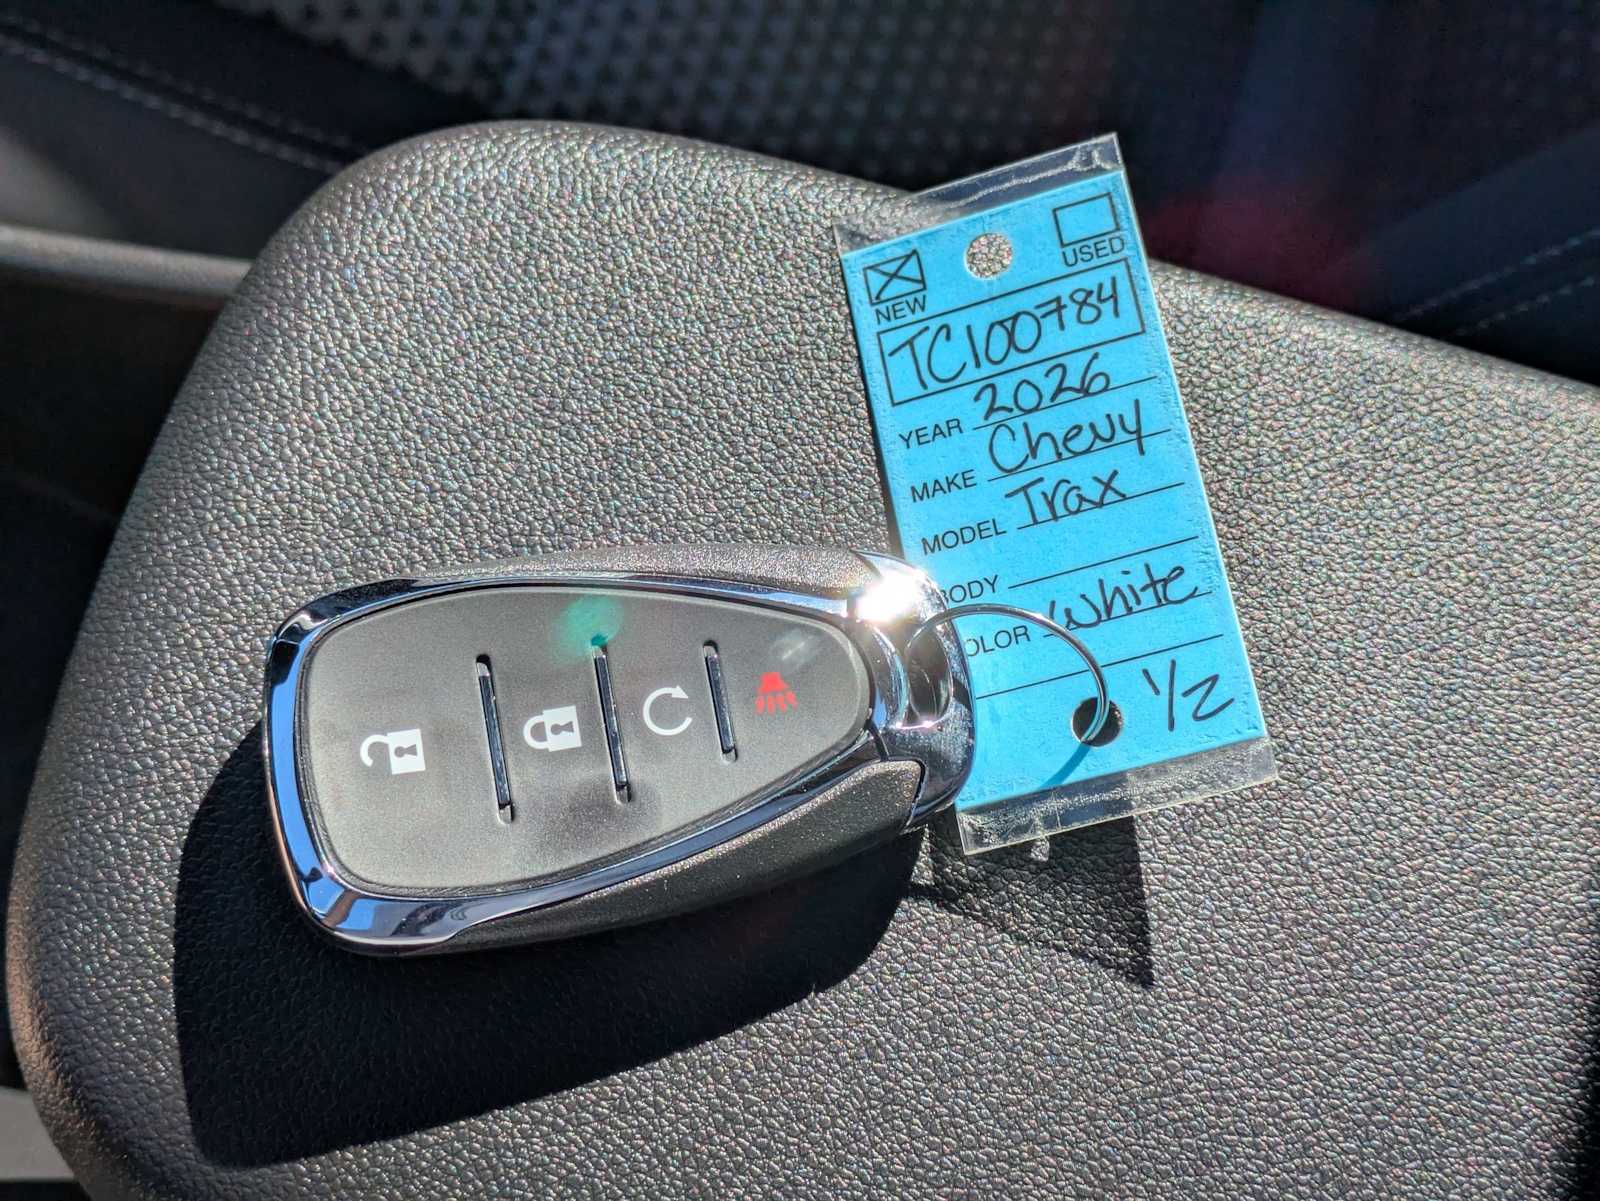 NEW USED
TC100784
YEAR 2026
MAKE Chevy
MODEL Trax
BODY
COLOR White
1/2